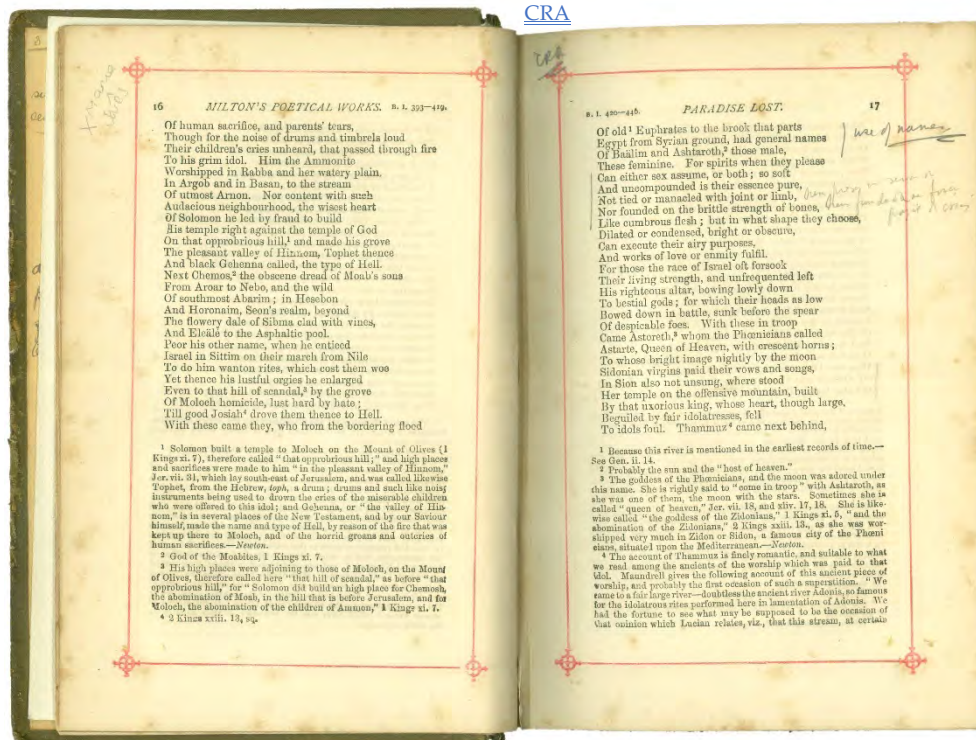 CRA
16 MILTON'S POETICAL WORKS. B. I. 393—419.
Of human sacrifice, and parents' tears,
Though for the noise of drums and timbrels loud
Their children's cries unheard, that passed through fire
To his grim idol. Him the Ammonite
Worshipped in Rabba and her watery plain,
In Argob and in Basan, to the stream
Of utmost Arnon. Nor content with such
Audacious neighbourhood, the wisest heart
Of Solomon he led by fraud to build
His temple right against the temple of God
On that opprobrious hill,¹ and made his grove
The pleasant valley of Hinnom, Tophet thence
And black Gehenna called, the type of Hell.
Next Chemos,² the obscene dread of Moab's sons
From Aroar to Nebo, and the wild
Of southmost Abarim; in Hesebon
And Horonaim, Seon's realm, beyond
The flowery dale of Sibma clad with vines,
And Elcälé to the Asphaltic pool.
Peor his other name, when he enticed
Israel in Sittim on their march from Nile
To do him wanton rites, which cost them woe
Yet thence his lustful orgies he enlarged
Even to that hill of scandal,³ by the grove
Of Moloch homicide, lust hard by hate;
Till good Josiah⁴ drove them thence to Hell.
With these came they, who from the bordering flood
¹ Solomon built a temple to Moloch on the Mount of Olives (1
Kings xi. 7), therefore called "that opprobrious hill;" and high places
and sacrifices were made to him "in the pleasant valley of Hinnom,"
Jer. vii. 31, which lay south-east of Jerusalem, and was called likewise
Tophet, from the Hebrew, toph, a drum; drums and such like noisy
instruments being used to drown the cries of the miserable children
who were offered to this idol; and Gehenna, or "the valley of Hin-
nom," is in several places of the New Testament, and by our Saviour
himself, made the name and type of Hell, by reason of the fire that was
kept up there to Moloch, and of the horrid groans and outcries of
human sacrifices.—Newton.
² God of the Moabites, 1 Kings xi. 7.
³ His high places were adjoining to those of Moloch, on the Mount
of Olives, therefore called here "that hill of scandal," as before "that
opprobrious hill," for "Solomon did build an high place for Chemosh,
the abomination of Moab, in the hill that is before Jerusalem, and for
Moloch, the abomination of the children of Ammon," 1 Kings xi. 7.
⁴ 2 Kings xxiii. 13, sq.
CRA
B. I. 420—446. PARADISE LOST. 17
Of old¹ Euphrates to the brook that parts
Egypt from Syrian ground, had general names
Of Baälim and Ashtaroth,² those male,
use of names
These feminine. For spirits when they please
Can either sex assume, or both; so soft
And uncompounded is their essence pure,
Not tied or manacled with joint or limb,
Nor founded on the brittle strength of bones,
Like cumbrous flesh; but in what shape they choose,
Dilated or condensed, bright or obscure,
Can execute their airy purposes,
And works of love or enmity fulfil.
For those the race of Israel oft forsook
Their living strength, and unfrequented left
His righteous altar, bowing lowly down
To bestial gods; for which their heads as low
Bowed down in battle, sunk before the spear
Of despicable foes. With these in troop
Came Astoreth,³ whom the Phœnicians called
Astarte, Queen of Heaven, with crescent horns;
To whose bright image nightly by the moon
Sidonian virgins paid their vows and songs,
In Sion also not unsung, where stood
Her temple on the offensive mountain, built
By that uxorious king, whose heart, though large,
Beguiled by fair idolatresses, fell
To idols foul. Thammuz⁴ came next behind,
¹ Because this river is mentioned in the earliest records of time.—
See Gen. ii. 14.
² Probably the sun and the "host of heaven."
³ The goddess of the Phœnicians, and the moon was adored under
this name. She is rightly said to "come in troop" with Ashtaroth, as
she was one of them, the moon with the stars. Sometimes she is
called "queen of heaven," Jer. vii. 18, and xliv. 17, 18. She is like-
wise called "the goddess of the Zidonians," 1 Kings xi. 5, "and the
abomination of the Zidonians," 2 Kings xxiii. 13., as she was wor-
shipped very much in Zidon or Sidon, a famous city of the Phœni
cians, situated upon the Mediterranean.—Newton.
⁴ The account of Thammuz is finely romantic, and suitable to what
we read among the ancients of the worship which was paid to that
idol. Maundrell gives the following account of this ancient piece of
worship, and probably the first occasion of such a superstition. "We
came to a fair large river—doubtless the ancient river Adonis, so famous
for the idolatrous rites performed here in lamentation of Adonis. We
had the fortune to see what may be supposed to be the occasion of
that opinion which Lucian relates, viz., that this stream, at certain